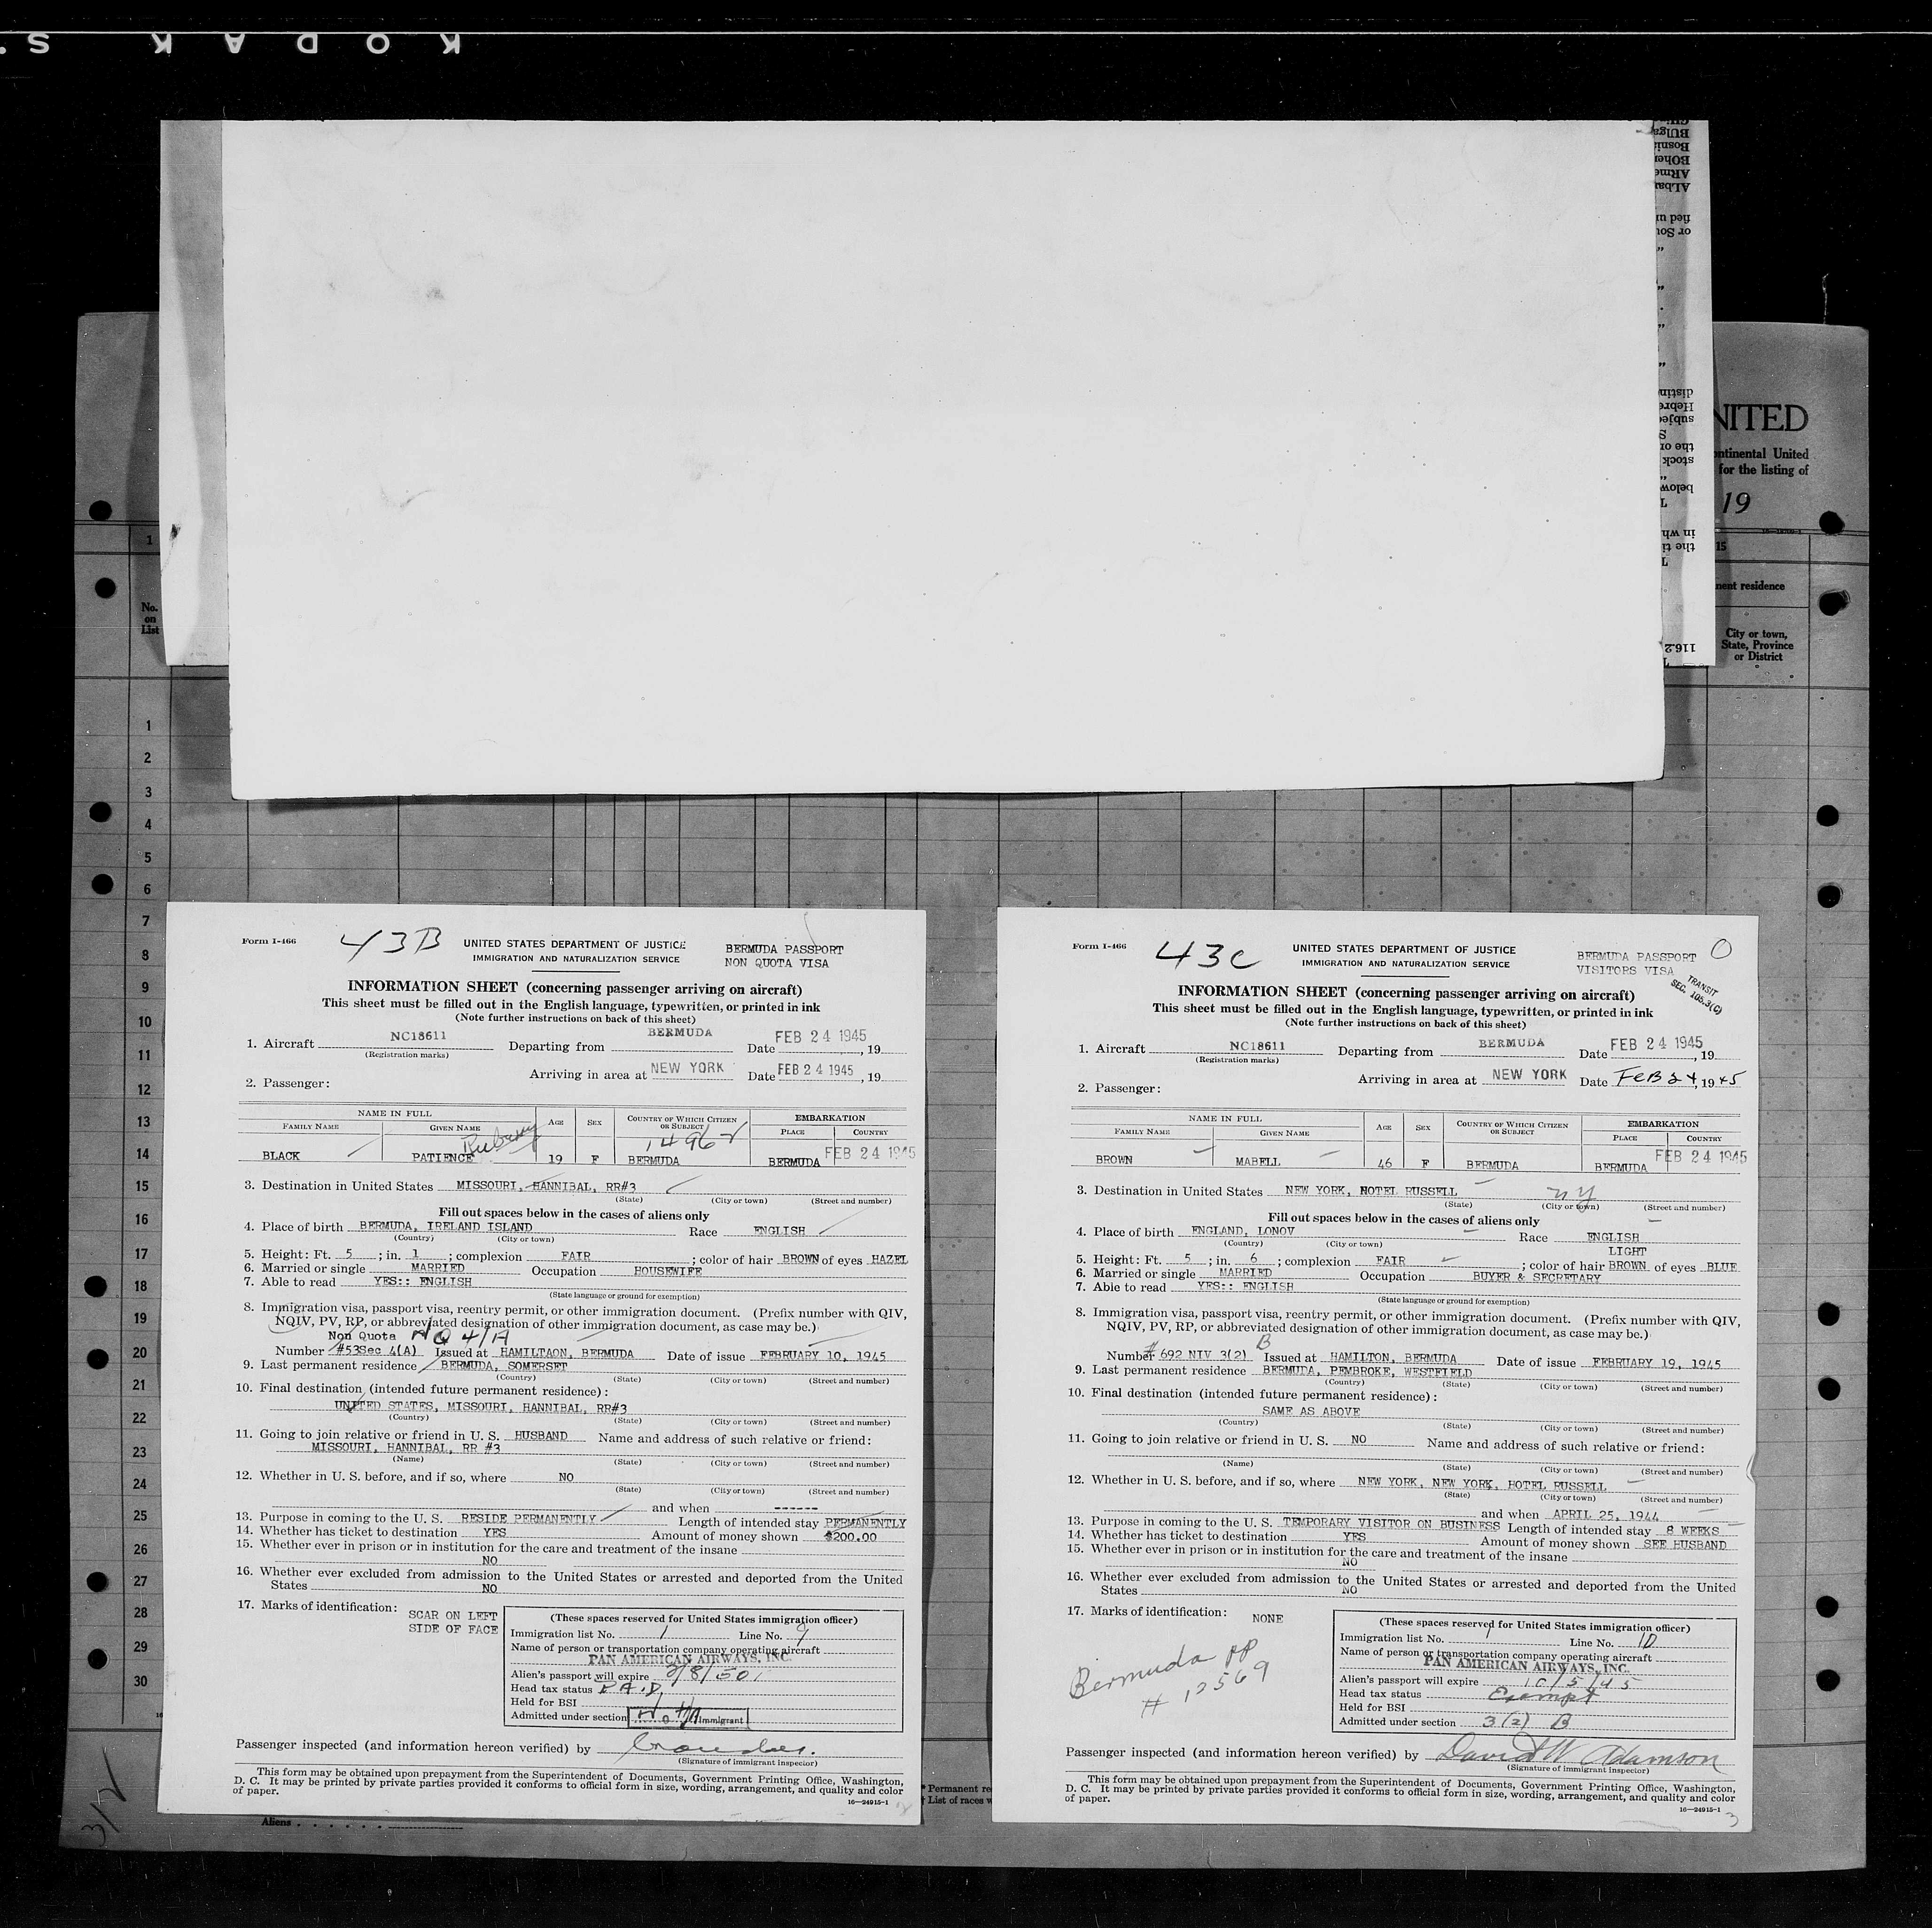 KODAK S.
NITED
ontinental United
for the listing of
19
nent residence
City or town,
State, Province
or District
No.
on
List
1
1
2
3
4
5
6
7
8
9
10
11
12
13
14
15
16
17
18
19
20
21
22
23
24
25
26
27
28
29
30
Form I-466
43B
UNITED STATES DEPARTMENT OF JUSTICE
IMMIGRATION AND NATURALIZATION SERVICE
BERMUDA PASSPORT
NON QUOTA VISA
INFORMATION SHEET (concerning passenger arriving on aircraft)
This sheet must be filled out in the English language, typewritten, or printed in ink
(Note further instructions on back of this sheet)
1. Aircraft NC18611 Departing from BERMUDA Date FEB 24 1945, 19
(Registration marks)
Arriving in area at NEW YORK Date FEB 24 1945, 19
2. Passenger:
NAME IN FULL
FAMILY NAME GIVEN NAME AGE SEX COUNTRY OF WHICH CITIZEN OR SUBJECT EMBARKATION PLACE COUNTRY
BLACK PATIENCE 19 F BERMUDA BERMUDA FEB 24 1945
3. Destination in United States MISSOURI, HANNIBAL, RR#3
(State) (City or town) (Street and number)
Fill out spaces below in the cases of aliens only
4. Place of birth BERMUDA, IRELAND ISLAND Race ENGLISH
(Country) (City or town)
5. Height: Ft. 5; in. 1; complexion FAIR; color of hair BROWN of eyes HAZEL
6. Married or single MARRIED Occupation HOUSEWIFE
7. Able to read YES:: ENGLISH
(State language or ground for exemption)
8. Immigration visa, passport visa, reentry permit, or other immigration document. (Prefix number with QIV,
NQIV, PV, RP, or abbreviated designation of other immigration document, as case may be.)
Non Quota NQ 4/A
Number #53Sec 4(A) Issued at HAMILTAON, BERMUDA Date of issue FEBRUARY 10, 1945
9. Last permanent residence BERMUDA, SOMERSET
(Country) (State) (City or town) (Street and number)
10. Final destination (intended future permanent residence):
UNITED STATES, MISSOURI, HANNIBAL, RR#3
(Country) (State) (City or town) (Street and number)
11. Going to join relative or friend in U. S. HUSBAND Name and address of such relative or friend:
MISSOURI, HANNIBAL, RR #3
(Name) (State) (City or town) (Street and number)
12. Whether in U. S. before, and if so, where NO
(State) (City or town) (Street and number)
and when ------
13. Purpose in coming to the U. S. RESIDE PERMANENTLY Length of intended stay PERMANENTLY
14. Whether has ticket to destination YES Amount of money shown $200.00
15. Whether ever in prison or in institution for the care and treatment of the insane
NO
16. Whether ever excluded from admission to the United States or arrested and deported from the United
States NO
17. Marks of identification: SCAR ON LEFT
SIDE OF FACE
(These spaces reserved for United States immigration officer)
Immigration list No. 1 Line No. 9
Name of person or transportation company operating aircraft
PAN AMERICAN AIRWAYS, INC.
Alien's passport will expire
Head tax status PAID
Held for BSI
Admitted under section Immigrant
Passenger inspected (and information hereon verified) by
(Signature of immigrant inspector)
This form may be obtained upon prepayment from the Superintendent of Documents, Government Printing Office, Washington,
D. C. It may be printed by private parties provided it conforms to official form in size, wording, arrangement, and quality and color
of paper.
16—24915-1
Form I-466
43C
UNITED STATES DEPARTMENT OF JUSTICE
IMMIGRATION AND NATURALIZATION SERVICE
BERMUDA PASSPORT
VISITORS VISA
TRANSIT
SEC. 105.3(C)
INFORMATION SHEET (concerning passenger arriving on aircraft)
This sheet must be filled out in the English language, typewritten, or printed in ink
(Note further instructions on back of this sheet)
1. Aircraft NC18611 Departing from BERMUDA Date FEB 24 1945, 19
(Registration marks)
Arriving in area at NEW YORK Date FEB 24, 1945
2. Passenger:
NAME IN FULL
FAMILY NAME GIVEN NAME AGE SEX COUNTRY OF WHICH CITIZEN OR SUBJECT EMBARKATION PLACE COUNTRY
BROWN MABELL 46 F BERMUDA BERMUDA FEB 24 1945
3. Destination in United States NEW YORK, HOTEL RUSSELL NY
(State) (City or town) (Street and number)
Fill out spaces below in the cases of aliens only
4. Place of birth ENGLAND, LONOV Race ENGLISH
(Country) (City or town)
LIGHT
5. Height: Ft. 5; in. 6; complexion FAIR; color of hair BROWN of eyes BLUE
6. Married or single MARRIED Occupation BUYER & SECRETARY
7. Able to read YES:: ENGLISH
(State language or ground for exemption)
8. Immigration visa, passport visa, reentry permit, or other immigration document. (Prefix number with QIV,
NQIV, PV, RP, or abbreviated designation of other immigration document, as case may be.)
Number # 692 NIV 3(2) B Issued at HAMILTON, BERMUDA Date of issue FEBRUARY 19, 1945
9. Last permanent residence BERMUDA, PEMBROKE, WESTFIELD
(Country) (State) (City or town) (Street and number)
10. Final destination (intended future permanent residence):
SAME AS ABOVE
(Country) (State) (City or town) (Street and number)
11. Going to join relative or friend in U. S. NO Name and address of such relative or friend:
(Name) (State) (City or town) (Street and number)
12. Whether in U. S. before, and if so, where NEW YORK, NEW YORK, HOTEL RUSSELL
(State) (City or town) (Street and number)
and when APRIL 25, 1944
13. Purpose in coming to the U. S. TEMPORARY VISITOR ON BUSINESS Length of intended stay 8 WEEKS
14. Whether has ticket to destination YES Amount of money shown SEE HUSBAND
15. Whether ever in prison or in institution for the care and treatment of the insane
NO
16. Whether ever excluded from admission to the United States or arrested and deported from the United
States NO
17. Marks of identification: NONE
Bermuda PP
# 12569
(These spaces reserved for United States immigration officer)
Immigration list No. 1 Line No. 10
Name of person or transportation company operating aircraft
PAN AMERICAN AIRWAYS, INC.
Alien's passport will expire 10/5/45
Head tax status Exempt
Held for BSI
Admitted under section 3(2) B
Passenger inspected (and information hereon verified) by David W Adamson
(Signature of immigrant inspector)
This form may be obtained upon prepayment from the Superintendent of Documents, Government Printing Office, Washington,
D. C. It may be printed by private parties provided it conforms to official form in size, wording, arrangement, and quality and color
of paper.
16—24915-1
* Permanent re
† List of races w
Aliens